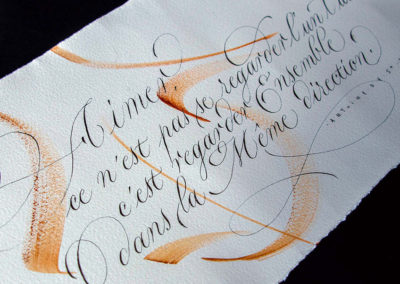 Aimer,
ce n'est pas se regarder l'un l'au
c'est regarder Ensemble
dans la Même direction.